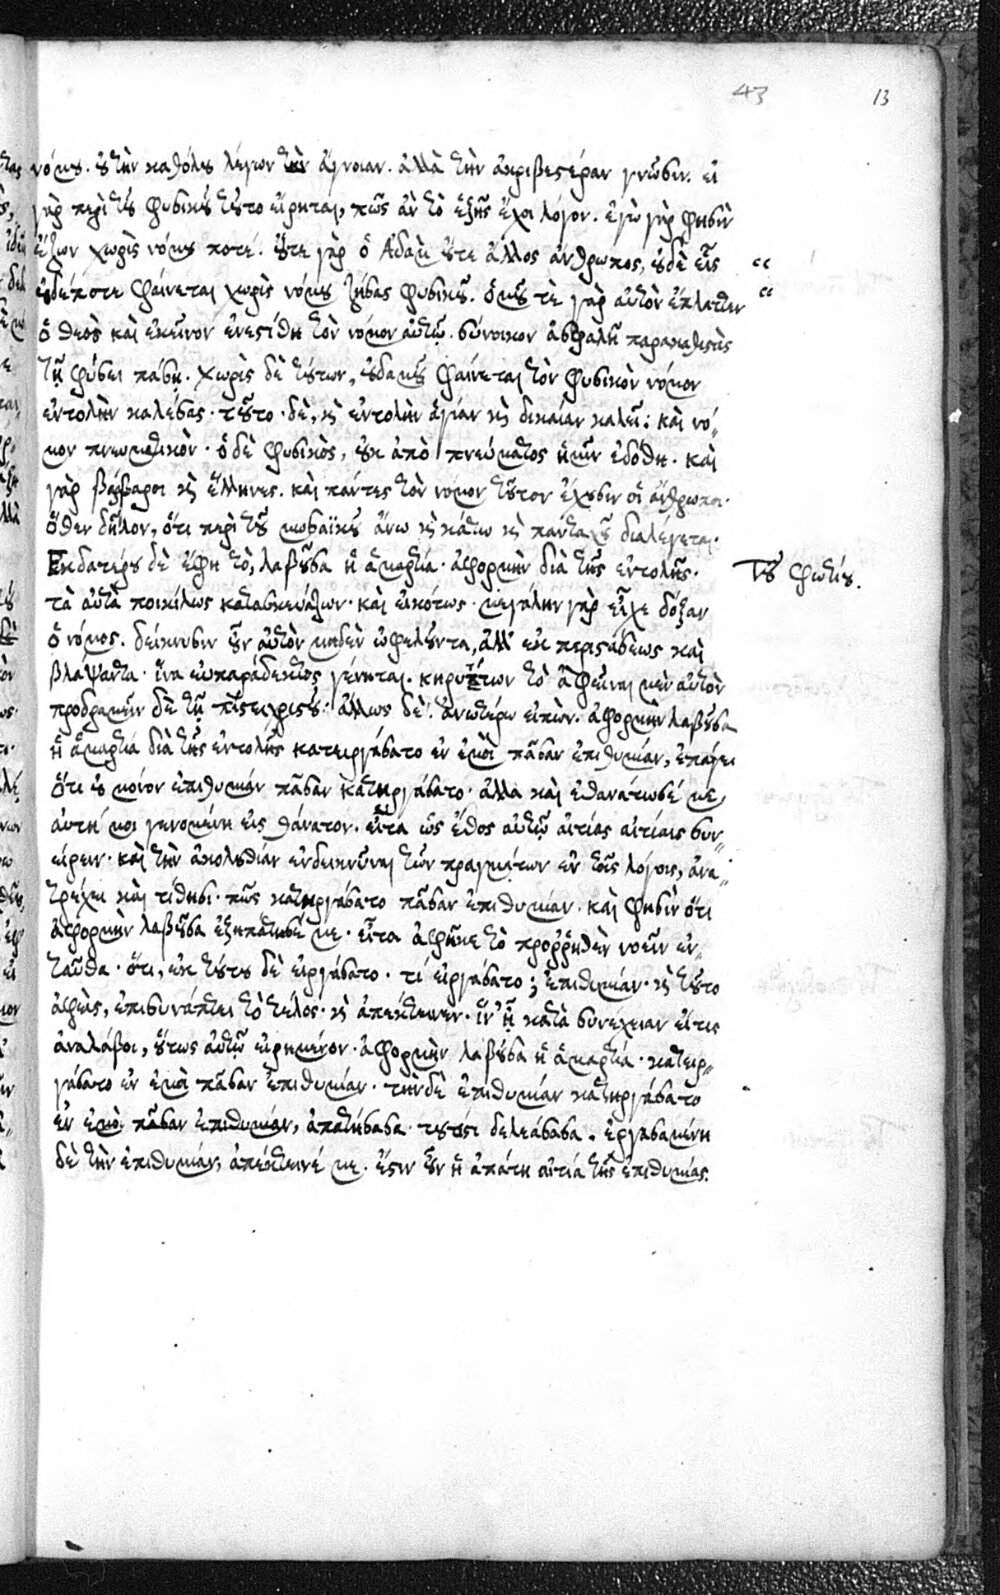 43 13
νόμου. οὐ τὴν καθόλου λέγων τὴν ἄγνοιαν. ἀλλὰ τὴν ἀκριβεστέραν γνῶσιν. εἰ
γὰρ περὶ τοῦ φυσικοῦ τοῦτο εἴρηται, πῶς ἂν τὸ ἑξῆς ἔχοι λόγον. ἐγὼ γὰρ φησὶν
ἔζων χωρὶς νόμου ποτέ. οὔτε γὰρ ὁ Ἀδὰμ οὔτε ἄλλος ἄνθρωπος, οὐδὲ εἷς “
οὐδέποτε φαίνεται χωρὶς νόμου ζήσας φυσικοῦ. ὁμοῦ τὲ γὰρ αὐτὸν ἔπλαττεν “
ὁ θεὸς καὶ ἐκεῖνον ἐνετίθη τὸν νόμον αὐτῷ. σύνοικον ἀσφαλῆ παρακαθιστὰς
τῇ φύσει πάσῃ. χωρὶς δὲ τούτων, οὐδαμοῦ φαίνεται τὸν φυσικὸν νόμον
ἐντολὴν καλέσας. τοῦτο δὲ, κὶ ἐντολὴν ἁγίαν κὶ δικαίαν καλεῖ: καὶ νό„
μον πνευματικὸν. ὁ δὲ φυσικὸς, οὐκ ἀπὸ πνεύματος ἡμῖν ἐδόθη. καὶ
γὰρ βάρβαροι κὶ ἕλληνες. καὶ πάντες τὸν νόμον τοῦτον ἔχουσιν οἱ ἄνθρωποι.
ὅθεν δῆλον, ὅτι περὶ τοῦ μωσαϊκοῦ ἄνω κὶ κάτω κὶ πανταχοῦ διαλέγεται.
Ἑκδατέρου δὲ ἔφη τὸ, λαβοῦσα ἡ ἁμαρτία. ἀφορμὴν διὰ τῆς ἐντολῆς. Τοῦ Φωτίου.
τὰ αὐτὰ ποικίλως κατασκευάζων. καὶ εἰκότως. μεγάλην γὰρ εἶχε δόξαν
ὁ νόμος. δείκνυσιν οὖν αὐτὸν μηδὲν ὠφελοῦντα, ἀλλ’ ἐκ περιστάσεως καὶ
βλάψαντα. ἵνα εὐπαράδεκτος γένηται. κηρύττων τὸ ἀφεῖναι μὲν αὐτὸν
προδραμεῖν δὲ τῇ πίστει χριστοῦ. ἄλλως δέ. ἀνωτέρω εἰπὼν. ἀφορμὴν λαβοῦσα
ἡ ἁμαρτία διὰ τῆς ἐντολῆς κατειργάσατο ἐν ἐμοὶ πᾶσαν ἐπιθυμίαν, ἐπάγει
ὅτι οὐ μόνον ἐπιθυμίαν πᾶσαν κατηργάσατο. ἀλλὰ καὶ ἐθανάτωσέ με,
αὐτή μοι γενομένη εἰς θάνατον. εἶτα ὡς ἔθος αὐτῷ αἰτίας αἰτίαις συν„
είρειν. καὶ τὴν ἀκολουθίαν ἐνδεικνύναι τῶν πραγμάτων ἐν τοῖς λόγοις, ἀνα„
τρέχει καὶ τίθησι. πῶς κατηργάσατο πᾶσαν ἐπιθυμίαν. καὶ φησὶν ὅτι
ἀφορμὴν λαβοῦσα ἐξηπάτησέ με. εἶτα ἀφῆκε τὸ προῤῥηθὲν νοεῖν ἐν„
ταῦθα. ὅτι, ἐκ τούτου δὲ εἰργάσατο. τί εἰργάσατο; ἐπιθυμίαν. κὶ τοῦτο
ἀφεὶς, ἐπισυνάπτει τὸ τέλος. κὶ ἀπέκτεινεν. ἵν’ ᾖ κατὰ συνέχειαν εἴ τις
ἀναλάβοι, οὕτως αὐτῷ εἰρημένον. ἀφορμὴν λαβοῦσα ἡ ἁμαρτία. κατειρ„
γάσατο ἐν ἐμοὶ πᾶσαν ἐπιθυμίαν. τὴν δὲ ἐπιθυμίαν κατηργάσατο
ἐν ἐμοὶ πᾶσαν ἐπιθυμίαν, ἀπατήσασα τουτέστι δελεάσασα. ἐργασαμένη
δὲ τὴν ἐπιθυμίαν, ἀπέκτεινέ με. ἔστιν οὖν ἡ ἀπάτη αἰτία τῆς ἐπιθυμίας.